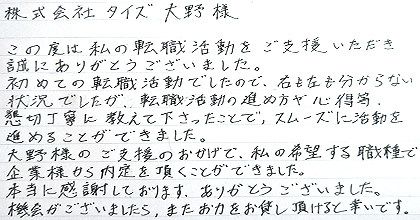 株式会社タイズ 大野様
この度は私の転職活動をご支援いただき
誠にありがとうございました。
初めての転職活動でしたので、右も左も分からない
状況でしたが、転職活動の進め方や心得等、
懇切丁寧に教えて下さったことで、スムーズに活動を
進めることができました。
大野様のご支援のおかげで、私の希望する職種で
企業様から内定を頂くことができました。
本当に感謝しております。ありがとうございました。
機会がございましたら、またお力をお貸し頂けると幸いです。